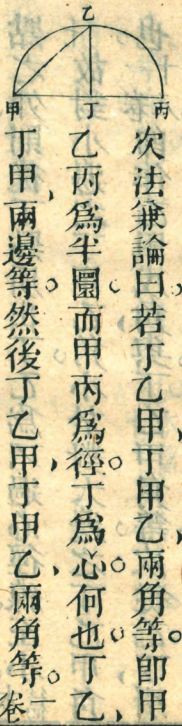 乙
甲丁丙
次法兼論曰若丁乙甲丁甲乙兩角等。卽甲
乙丙爲半圜而甲丙爲徑。丁爲心。何也丁乙、
丁甲、兩邊等。然後丁乙甲、丁甲乙、兩角等。卷一